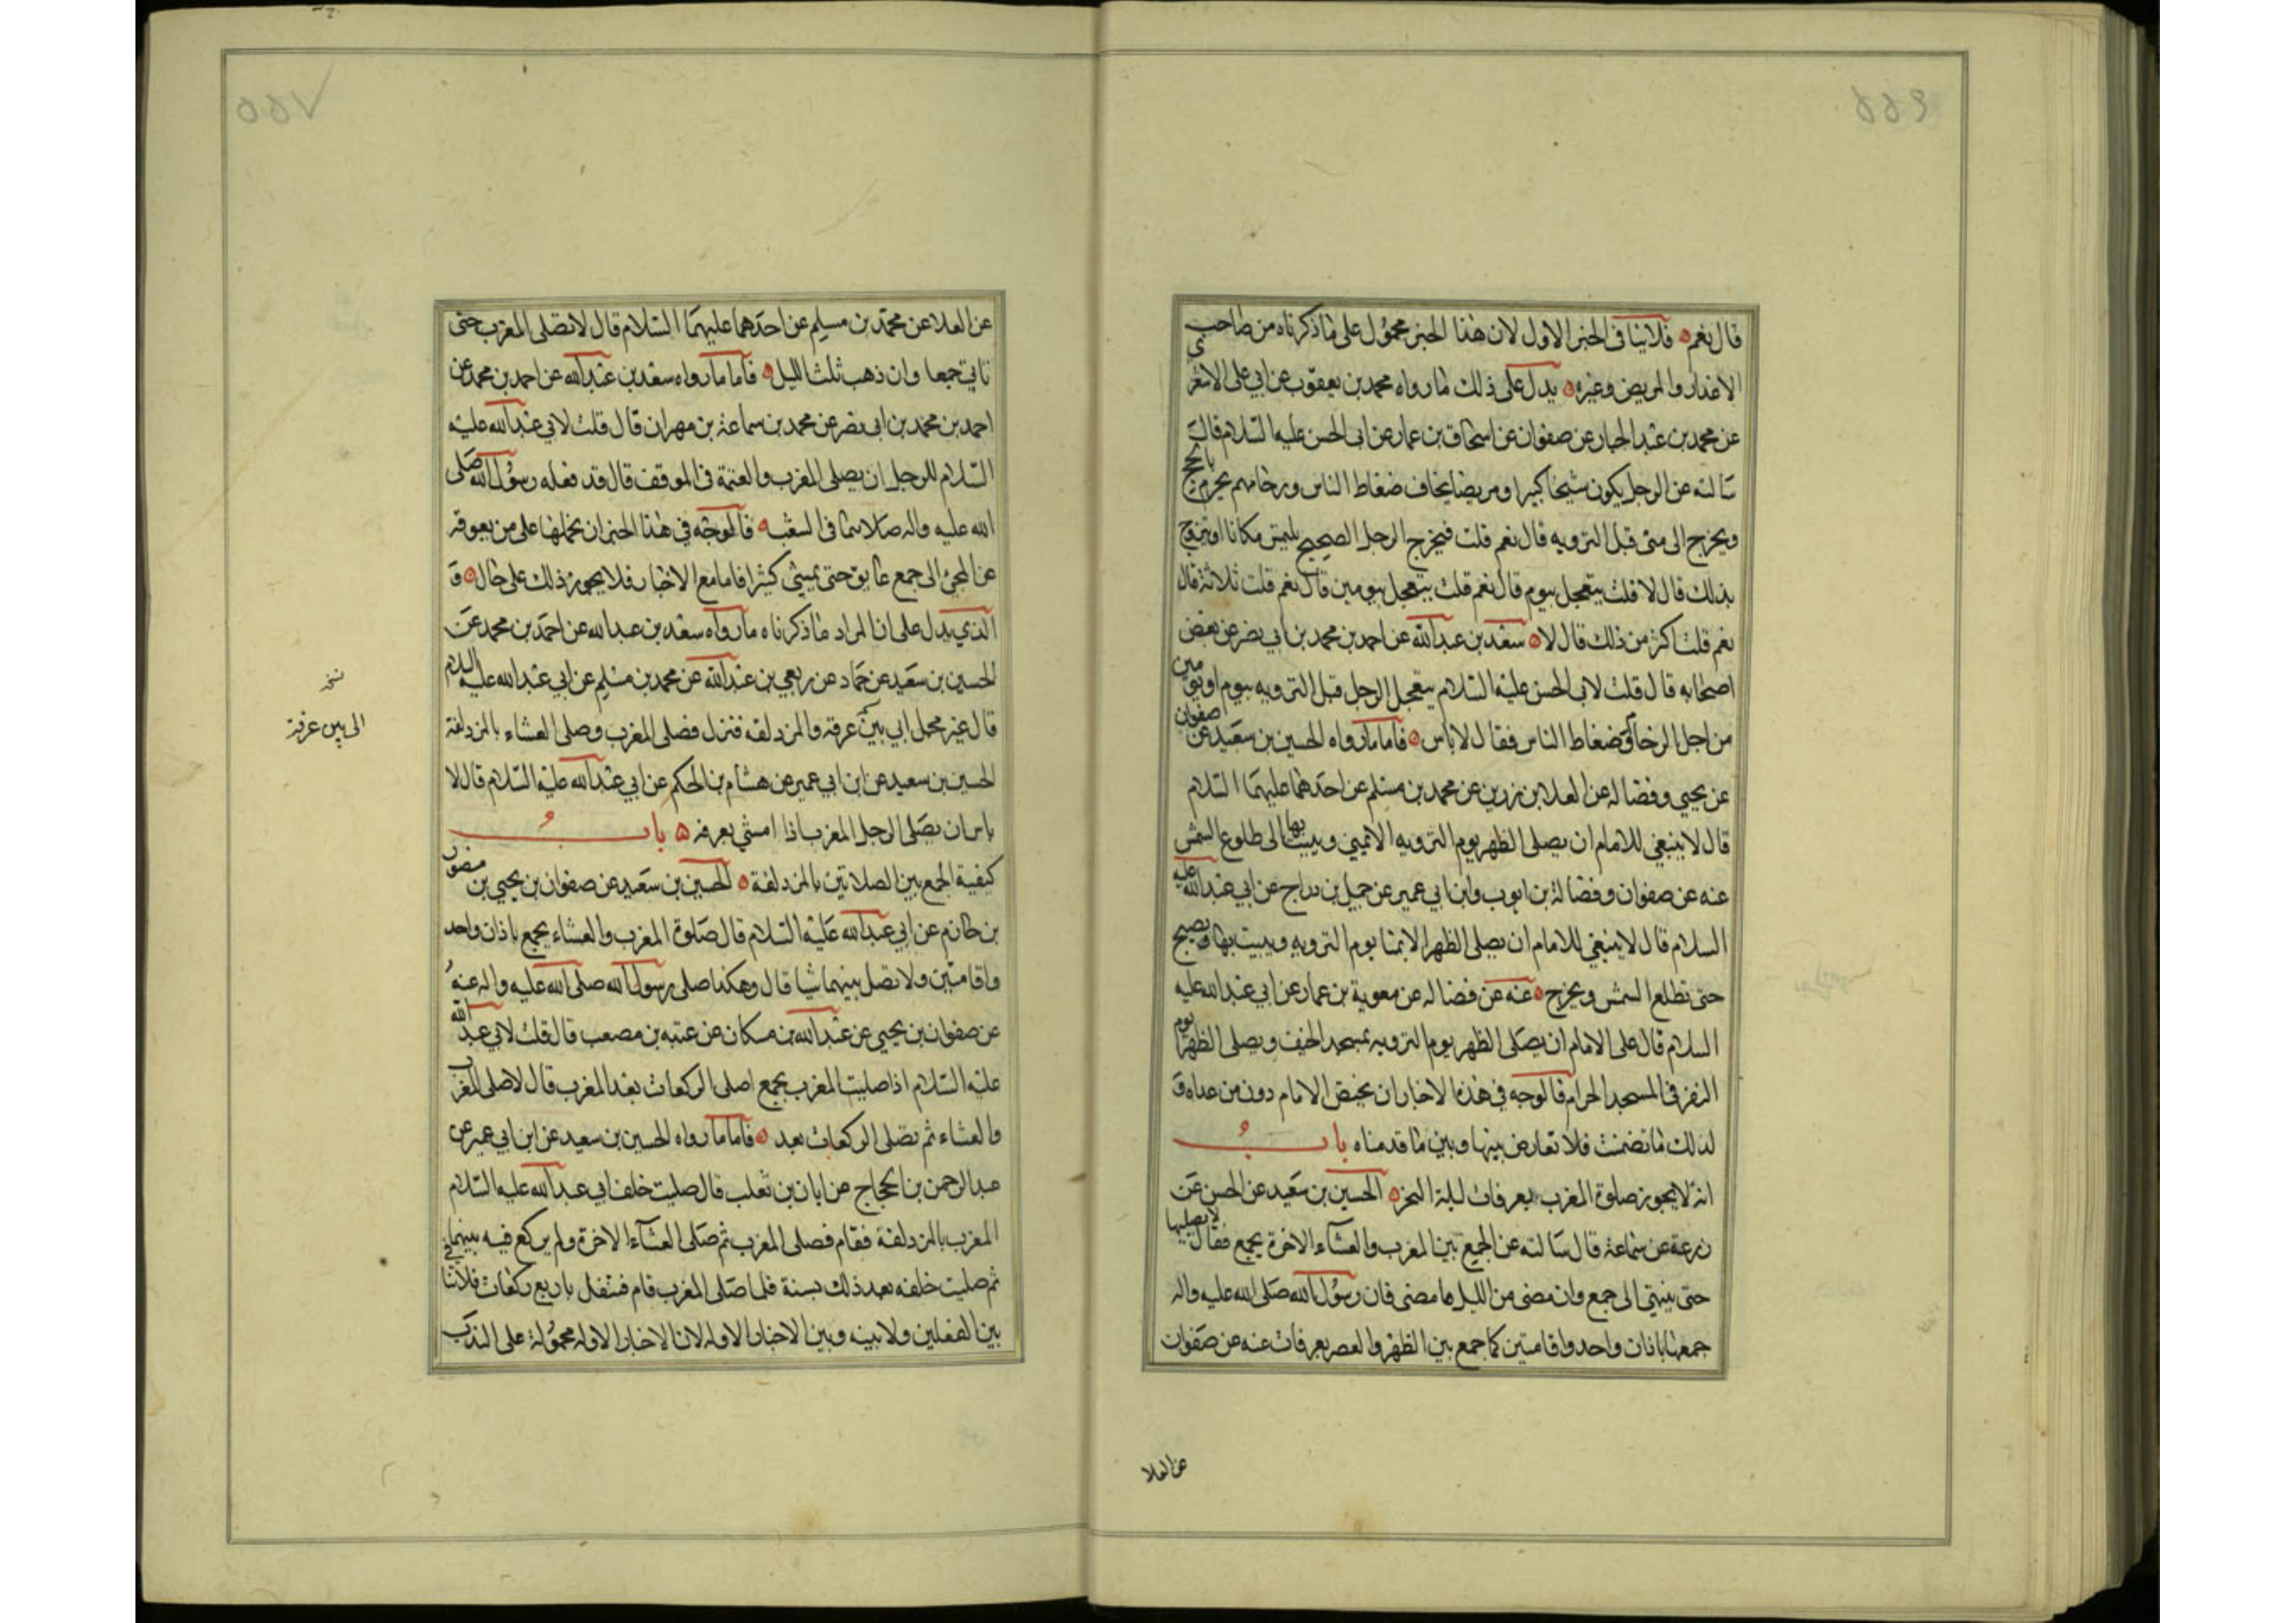 قال نعم فلا ينافى الخبر الاول لان هذا الخبر محمول على ما ذكرناه من صاحب
الاعذار والمريض وغيره يدل على ذلك ما رواه محمد بن يعقوب عن ابي على الاشعرى
عن محمد بن عبد الجبار عن صفوان عن اسحاق بن عمار عن ابى الحسن عليه السلام قال
سالته عن الرجل يكون شيخا كبيرا او مريضا يخاف ضغاط الناس وزحامهم يحرم بالحج
ويخرج الى منى قبل الترويه قال نعم قلت فيخرج الرجل الصحيح يلتمس مكانا او يتروح
بذلك قال لا قلت يتعجل بيوم قال نعم قلت يتعجل بيومين قال نعم قلت ثلاثة قال
نعم قلت اكثر من ذلك قال لا سعد بن عبد الله عن احمد بن محمد بن ابي نصر عن بعض
اصحابه قال قلت لابى الحسن عليه السلام يتعجل الرجل قبل الترويه بيوم او يومين
من اجل الزحام وضغاط الناس فقال لا باس فاما ما رواه الحسين بن سعيد عن صفوان
عن يحيى وفضاله عن العلا بن رزين عن محمد بن مسلم عن احدهما عليهما السلام
قال لا ينبغي للامام ان يصلى الظهر يوم الترويه الا بمنى ويبيت بها الى طلوع الشمس
عنه عن صفوان وفضالة بن ايوب وابن ابي عمير عن جميل بن دراج عن ابي عبد الله عليه
السلام قال لا ينبغي للامام ان يصلى الظهر الا بمنا يوم الترويه ويبيت بها ويصبح
حتى تطلع الشمس ويخرج عنه عن فضاله عن معوية بن عمار عن ابي عبد الله عليه
السلام قال على الامام ان يصلى الظهر يوم الترويه بمسجد الخيف ويصلى الظهر يوم
النفر فى المسجد الحرام فالوجه في هذه الاخبار ان يختص الامام دون من عداه و
لذلك ما تضمنت فلا تعارض بينها وبين ما قدمناه باب
انه لا يجوز صلوة المغرب بعرفات ليلة النحر الحسين بن سعيد عن الحسن عن
زرعة عن سماعة قال سالته عن الجمع بين المغرب والعشاء الاخرة بجمع فقال لا يصليها
حتى ينتهى الى جمع وان مضى من الليل ما مضى فان رسول الله صلى الله عليه واله
جمعها باذان واحد واقامتين كما جمع بين الظهر والعصر بعرفات عنه عن صفوان
عن العلا
عن العلا عن محمد بن مسلم عن احدهما عليهما السلام قال لا تصلى المغرب حتى
تاتي جمعا وان ذهب ثلث الليل فاما ما رواه سعد بن عبد الله عن احمد بن محمد عن
احمد بن محمد بن ابى نصر عن محمد بن سماعة بن مهران قال قلت لابي عبد الله عليه
السلام للرجل ان يصلى المغرب والعتمة فى الموقف قال قد فعله رسول الله صلى
الله عليه واله صلاهما فى الشعب فالوجه في هذا الخبر ان نحملها على من يعوقه
عن المجئ الى جمع عايق حتى يمسى كثيرا فاما مع الاختيار فلا يجوز ذلك على حال و
الذي يدل على ان المراد ما ذكرناه ما رواه سعد بن عبد الله عن احمد بن محمد عن
الحسين بن سعيد عن حماد عن ربعي بن عبد الله عن محمد بن مسلم عن ابي عبد الله عليه السلام
قال عثر محمل ابي بين عرفة والمزدلفة فنزل فصلى المغرب وصلى العشاء بالمزدلفة
الحسين بن سعيد عن ابن ابي عمير عن هشام بن الحكم عن ابي عبد الله عليه السلام قال لا
باس ان يصلى الرجل المغرب اذا امسى بعرفة باب
كيفية الجمع بين الصلاتين بالمزدلفة الحسين بن سعيد عن صفوان بن يحيى بن منصور
بن حازم عن ابي عبد الله عليه السلام قال صلوة المغرب والعشاء بجمع باذان واحد
واقامتين ولا تصل بينهما شيا قال وهكذا صلى رسول الله صلى الله عليه واله عنه
عن صفوان بن يحيى عن عبد الله بن مسكان عن عتبه بن مصعب قال قلت لابي عبد الله
عليه السلام اذا صليت المغرب بجمع اصلى الركعات بعد المغرب قال لا صلى المغرب
والعشاء ثم تصلى الركعات بعد فاما ما رواه الحسين بن سعيد عن ابن ابي عمير عن
عبد الرحمن بن الحجاج عن ابان بن تغلب قال صليت خلف ابي عبد الله عليه السلام
المغرب بالمزدلفة فقام فصلى المغرب ثم صلى العشاء الاخرة ولم يركع فيه بينهما
ثم صليت خلفه بعد ذلك بسنة فلما صلى المغرب قام فتنفل باربع ركعات فلا تنافى
بين الفعلين ولا بينه وبين الاخبار الاوله لان الاخبار الاوله محمولة على الندب
نسخه
الى بين عرفة